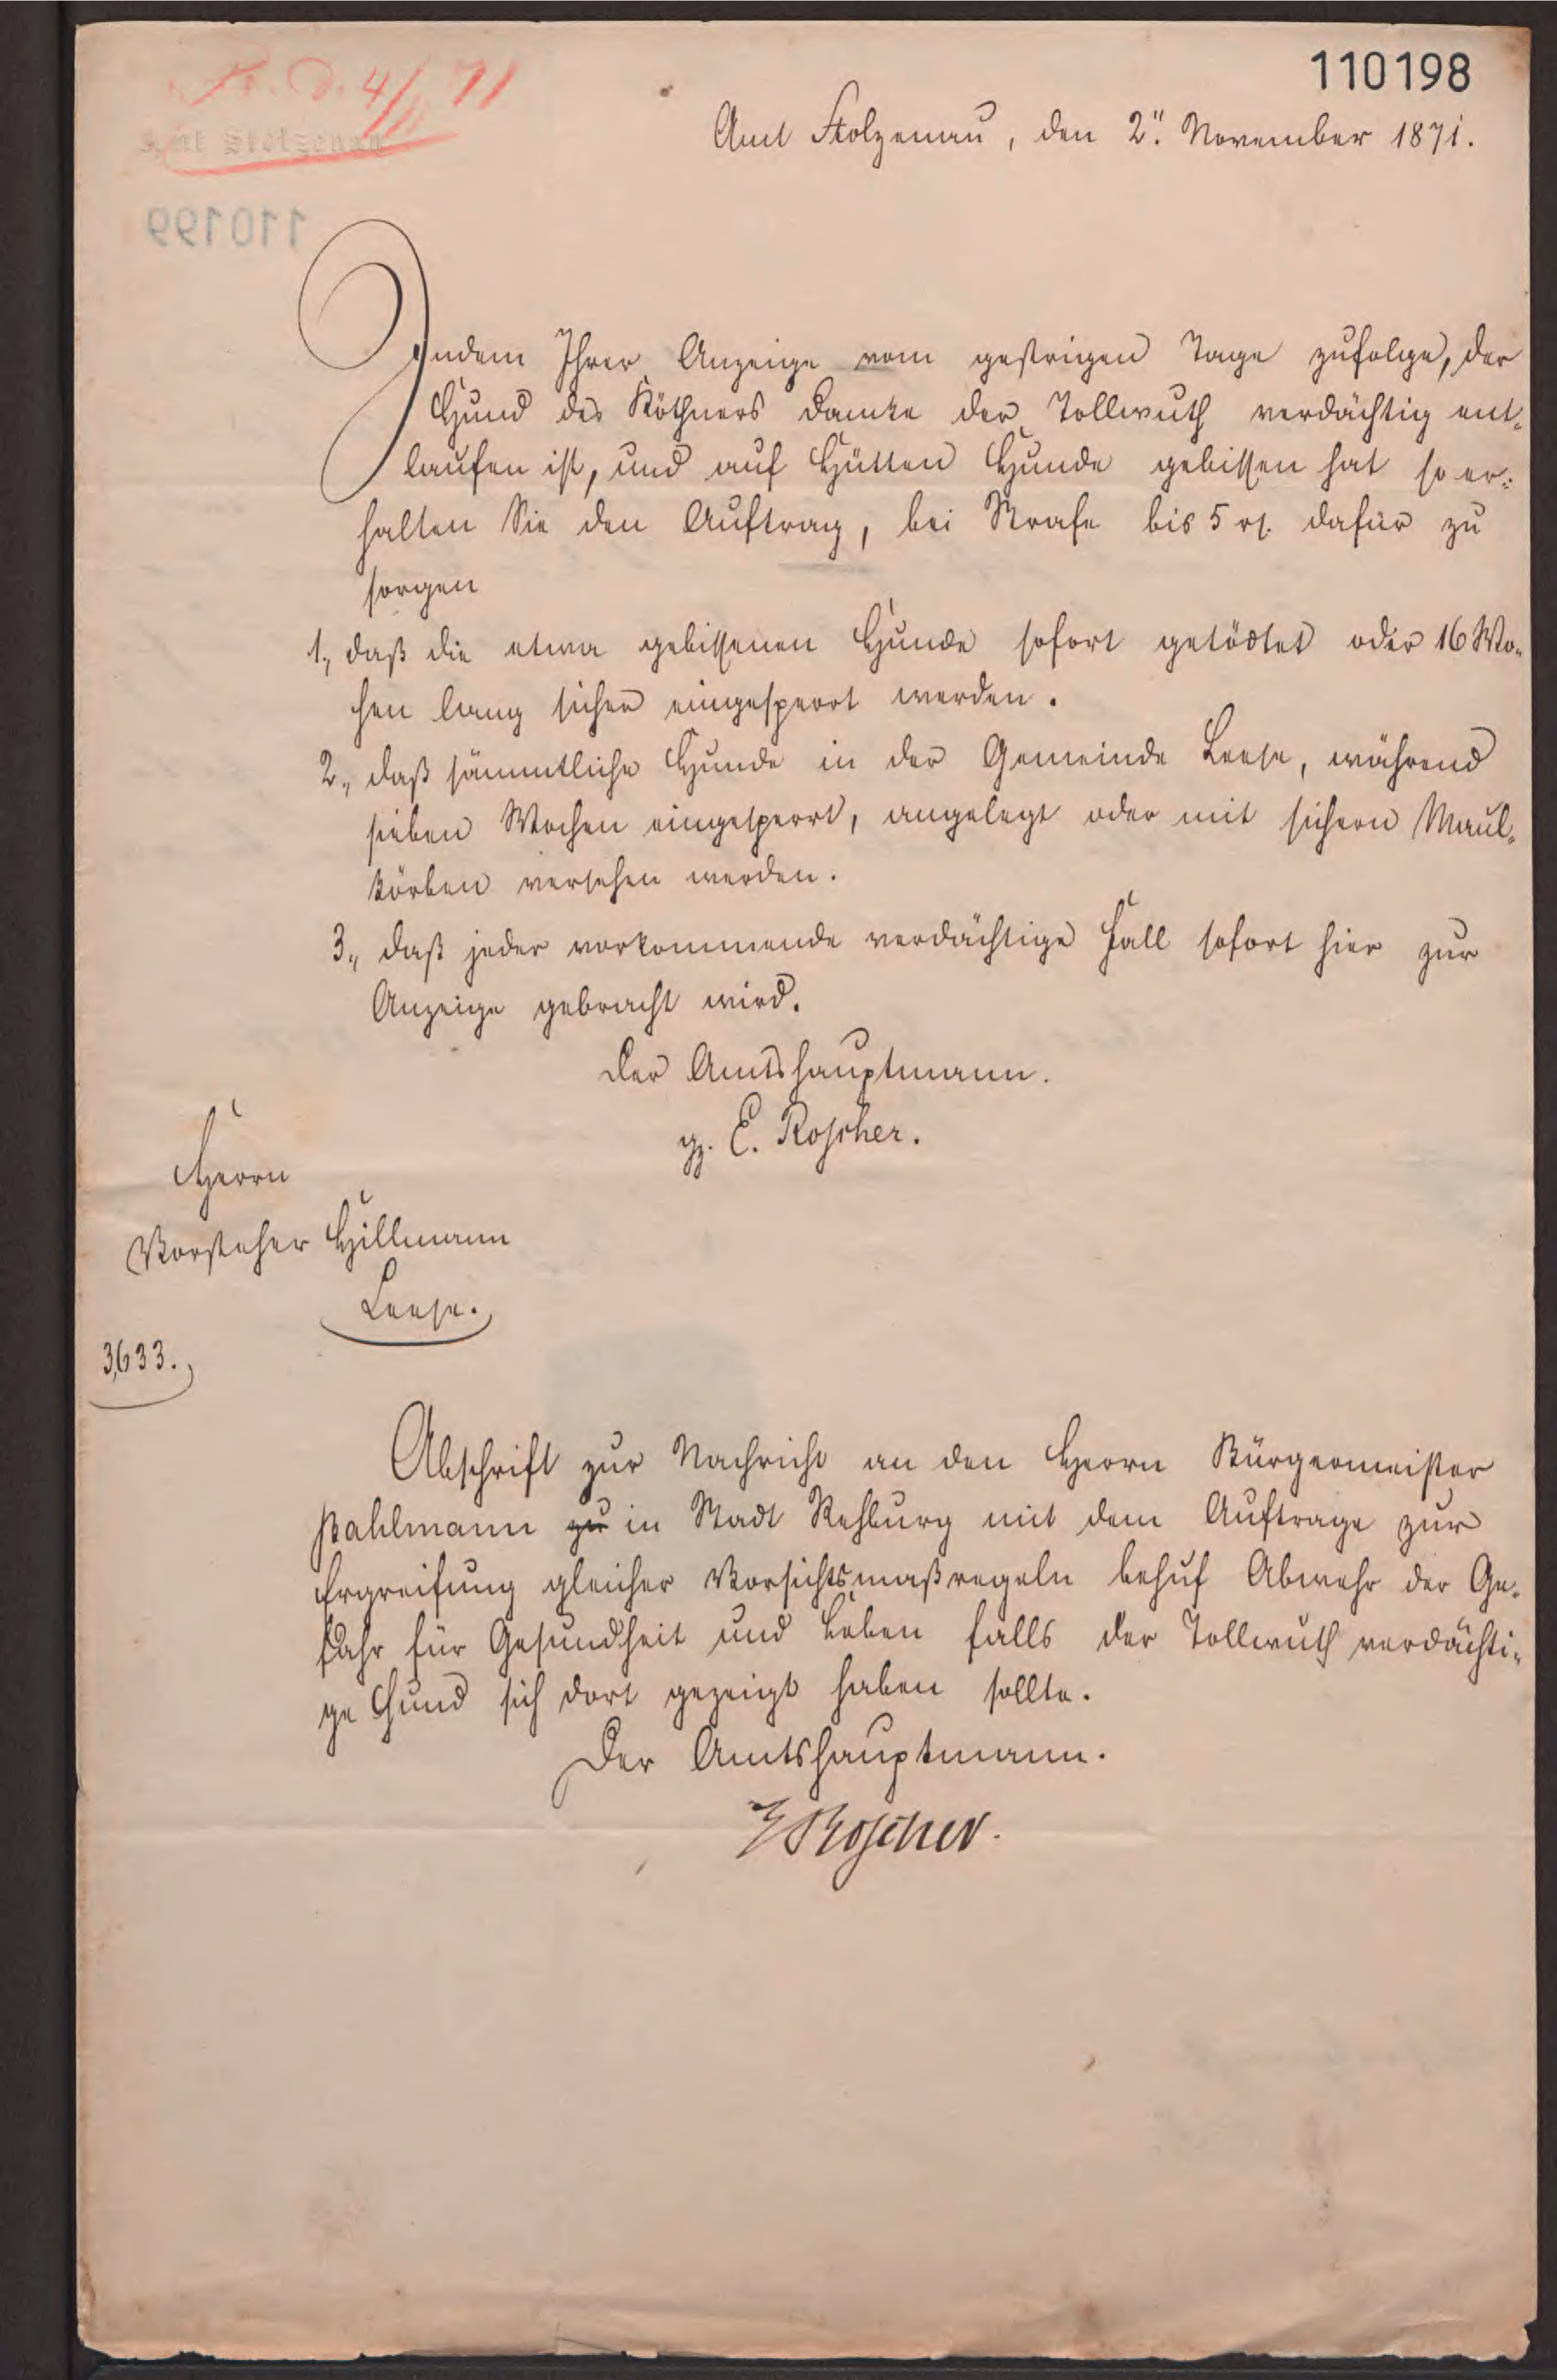 110198
Pr. d. 4/11 71
Amt Stolzenau
Amt Stolzenau, den 2ten November 1871.
110199
Indem Ihrer Anzeige vom gestrigen Tage zufolge, der
Hund des Köthners Damke der Tollwuth verdächtig ent-
laufen ist, und auf Hütten Hunde gebissen hat so er-
halten Sie den Auftrag, bei Strafe bis 5 rt. dafür zu
sorgen
1, daß die etwa gebissenen Hunde sofort getödtet oder 16 Wo-
chen lang sicher eingesperrt werden.
2, daß sämmtliche Hunde in der Gemeinde Leese, während
sieben Wochen eingesperrt, angelegt oder mit sichern Maul-
körben versehen werden.
3, daß jeder vorkommende verdächtige Fall sofort hier zur
Anzeige gebracht wird.
Der Amtshauptmann.
gz. E. Roscher.
Herrn
Vorsteher Hillmann
Leese.
3,633.
Abschrift zur Nachricht an den Herrn Bürgermeister
Pahlmann zu in Stadt Rehburg mit dem Auftrage zur
Ergreifung gleicher Vorsichtsmaßregeln behuf Abwehr der Ge-
fahr für Gesundheit und Leben falls der Tollwuth verdächti-
ge Hund sich dort gezeigt haben sollte.
Der Amtshauptmann.
E Roscher.